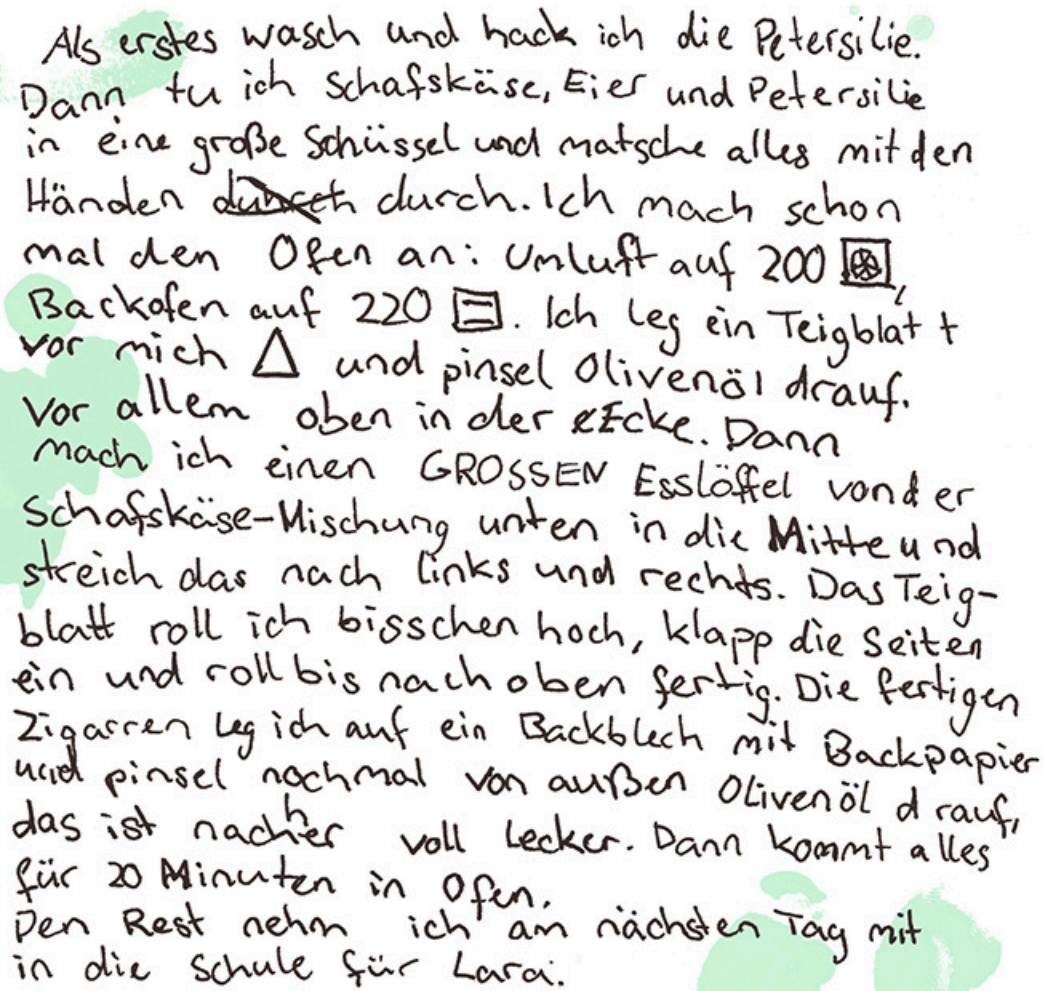 Als erstes wasch und hack ich die Petersilie.
Dann tu ich Schafskäse, Eier und Petersilie
in eine große Schüssel und matsche alles mit den
Händen durch. Ich mach schon
mal den Ofen an: Umluft auf 200 ,
Backofen auf 220 . Ich leg ein Teigblatt
vor mich △ und pinsel Olivenöl drauf.
Vor allem oben in der Ecke. Dann
mach ich einen GROSSEN Esslöffel von der
Schafskäse-Mischung unten in die Mitte und
streich das nach links und rechts. Das Teig-
blatt roll ich bisschen hoch, klapp die Seiten
ein und roll bis nach oben fertig. Die fertigen
Zigarren leg ich auf ein Backblech mit Backpapier
und pinsel nochmal von außen Olivenöl drauf,
das ist nachher voll lecker. Dann kommt alles
für 20 Minuten in Ofen.
Den Rest nehm ich am nächsten Tag mit
in die Schule für Lara.